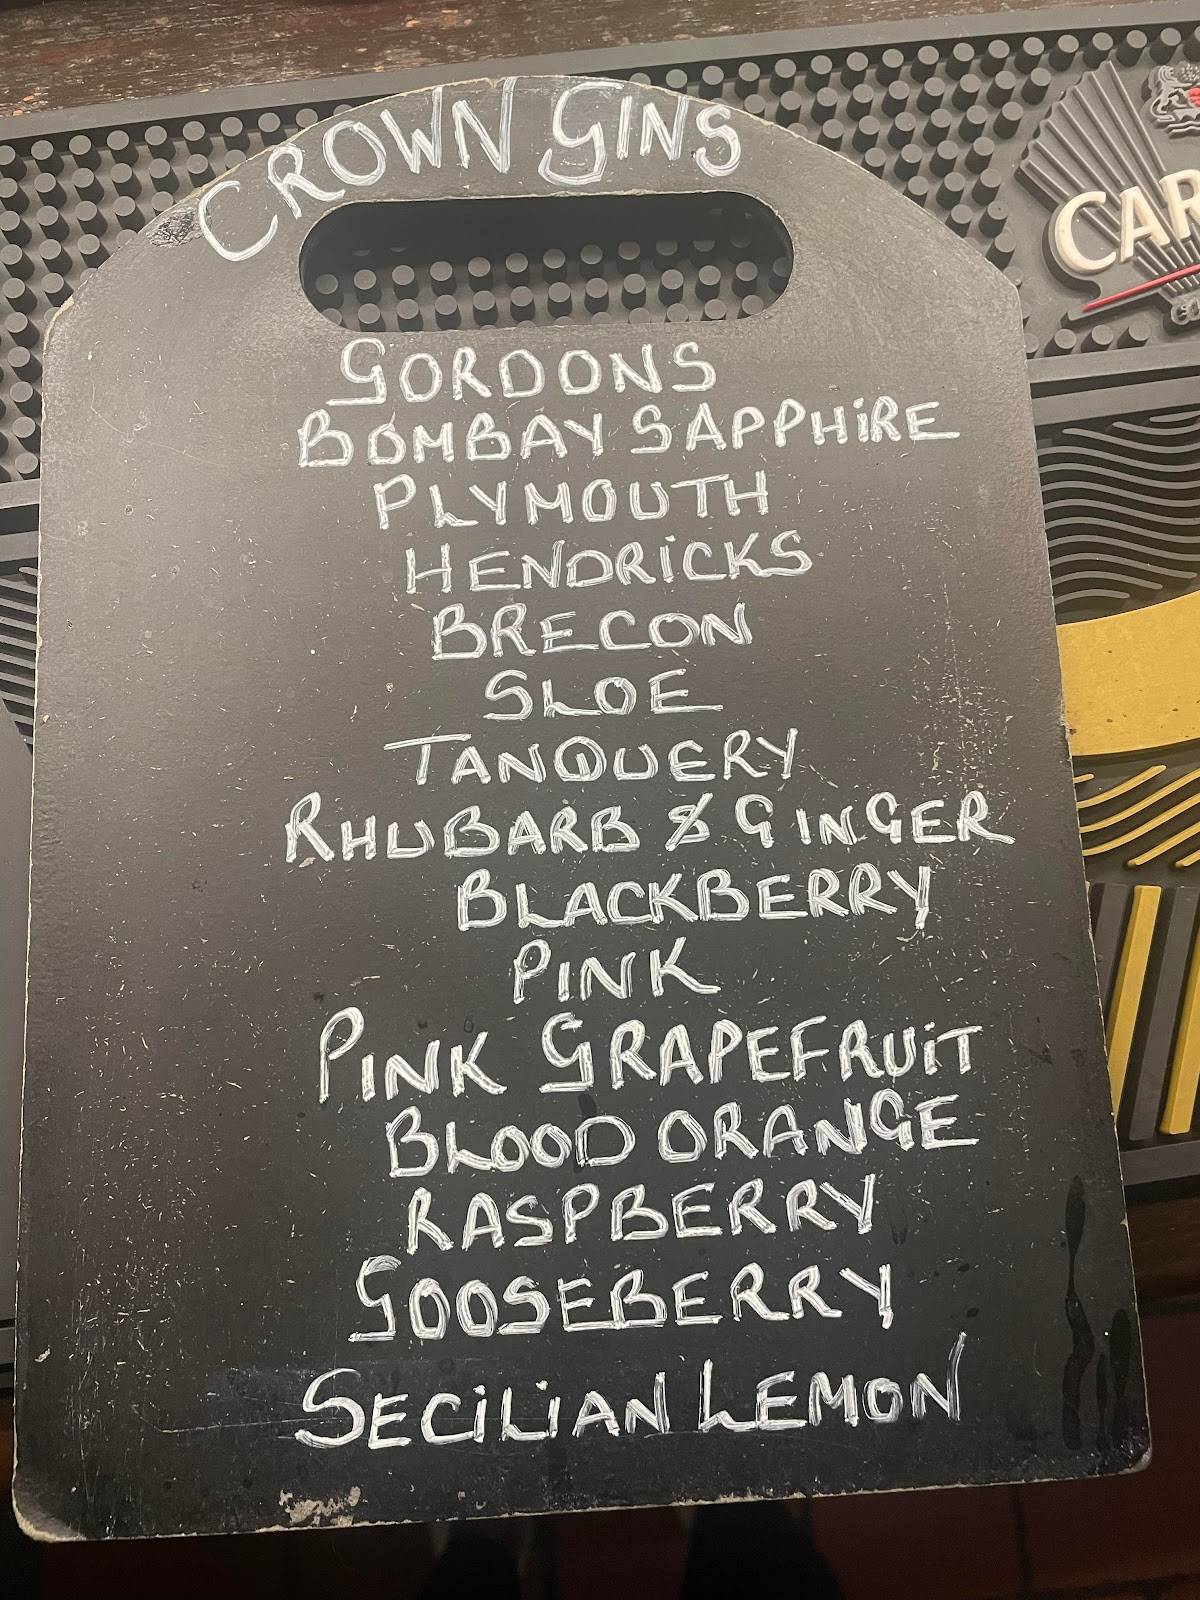 CROWN GINS
GORDONS
BOMBAY SAPPHiRE
PLYMOUTH
HENDRiCKS
BRECON
SLOE
TANQUERY
RHUBARB & GINGER
BLACKBERRY
PINK
PINK GRAPEFRUiT
BLOOD ORANGE
RASPBERRY
GOOSEBERRY
SECiLiAN LEMON
CAR